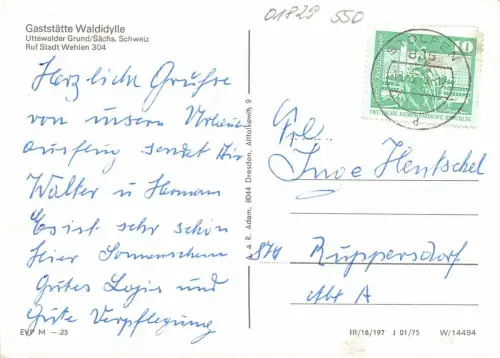 Gaststätte Waldidylle
Uttewalder Grund/Sächs. Schweiz
Ruf Stadt Wehlen 304
01829 550
Herzliche Grüße
von unsern Urlaubs
ausflug sendet Dir
Walter u Hermann
Es ist sehr schön
hier Sonnenschein
Gutes Logie und
Gute Verpflegung
EVP M –.25
a R. Adam, 8044 Dresden, Altlockwitz 9
STOLPEN
835
10
DEUTSCHE DEMOKRATISCHE REPUBLIK
Frl.
Inge Hentschel
Ruppersdorf
Abt A
III/18/197 J 01/75 W/14484